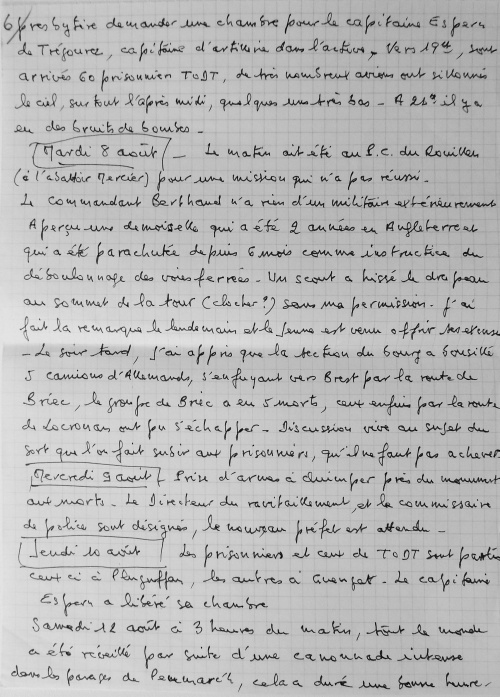 6/ presbytère demander une chambre pour le capitaine Espern
de Trégourez, capitaine d'artillerie dans l'active, Vers 19H, sont
arrivés 60 prisonnier TODT, de très nombreux avions ont sillonnés
le ciel, surtout l'après midi, quelques uns très bas - A 21H il y a
eu des bruits de bombes -
Mardi 8 août - Le matin ait été au P.C. du Rouillen
(à l'abattoir Mercier) pour une mission qui n'a pas réussi.
Le commandant Berthaud n'a rien d'un militaire extérieurement
Aperçu une demoiselle qui a été 2 années en Angleterre et
qui a été parachutée depuis 6 mois comme instructrice du
déboulonnage des voies ferrées - Un scout a hissé le drapeau
au sommet de la tour (clocher ?) sans ma permission - j'ai
fait la remarque le lendemain et le jeune est venu offrir ses excuses
- Le soir tard, j'ai appris que la section du bourg a bousillé
5 camions d'Allemands, s'enfuyant vers Brest par la route de
Briec, le groupe de Briec a eu 5 morts, ceux enfuis par la route
de Locronan ont pu s'échapper - Discussion vive au sujet du
sort que l'on fait subir aux prisonniers, qu'il ne faut pas achever
Mercredi 9 août - Prise d'armes à Quimper près du monument
aux morts - Le Directeur du ravitaillement et le commissaire
de police sont désignés, le nouveau préfet est attendu -
Jeudi 10 août Les prisonniers et ceux de TODT sont partis
ceux ci à Pluguffan, les autres à Guengat - Le capitaine
Espern a libéré sa chambre
Samedi 12 août à 3 heures du matin, tout le monde
a été réveillé par suite d'une canonnade intense
dans les parages de Penmarc'h, cela a duré une bonne heure -